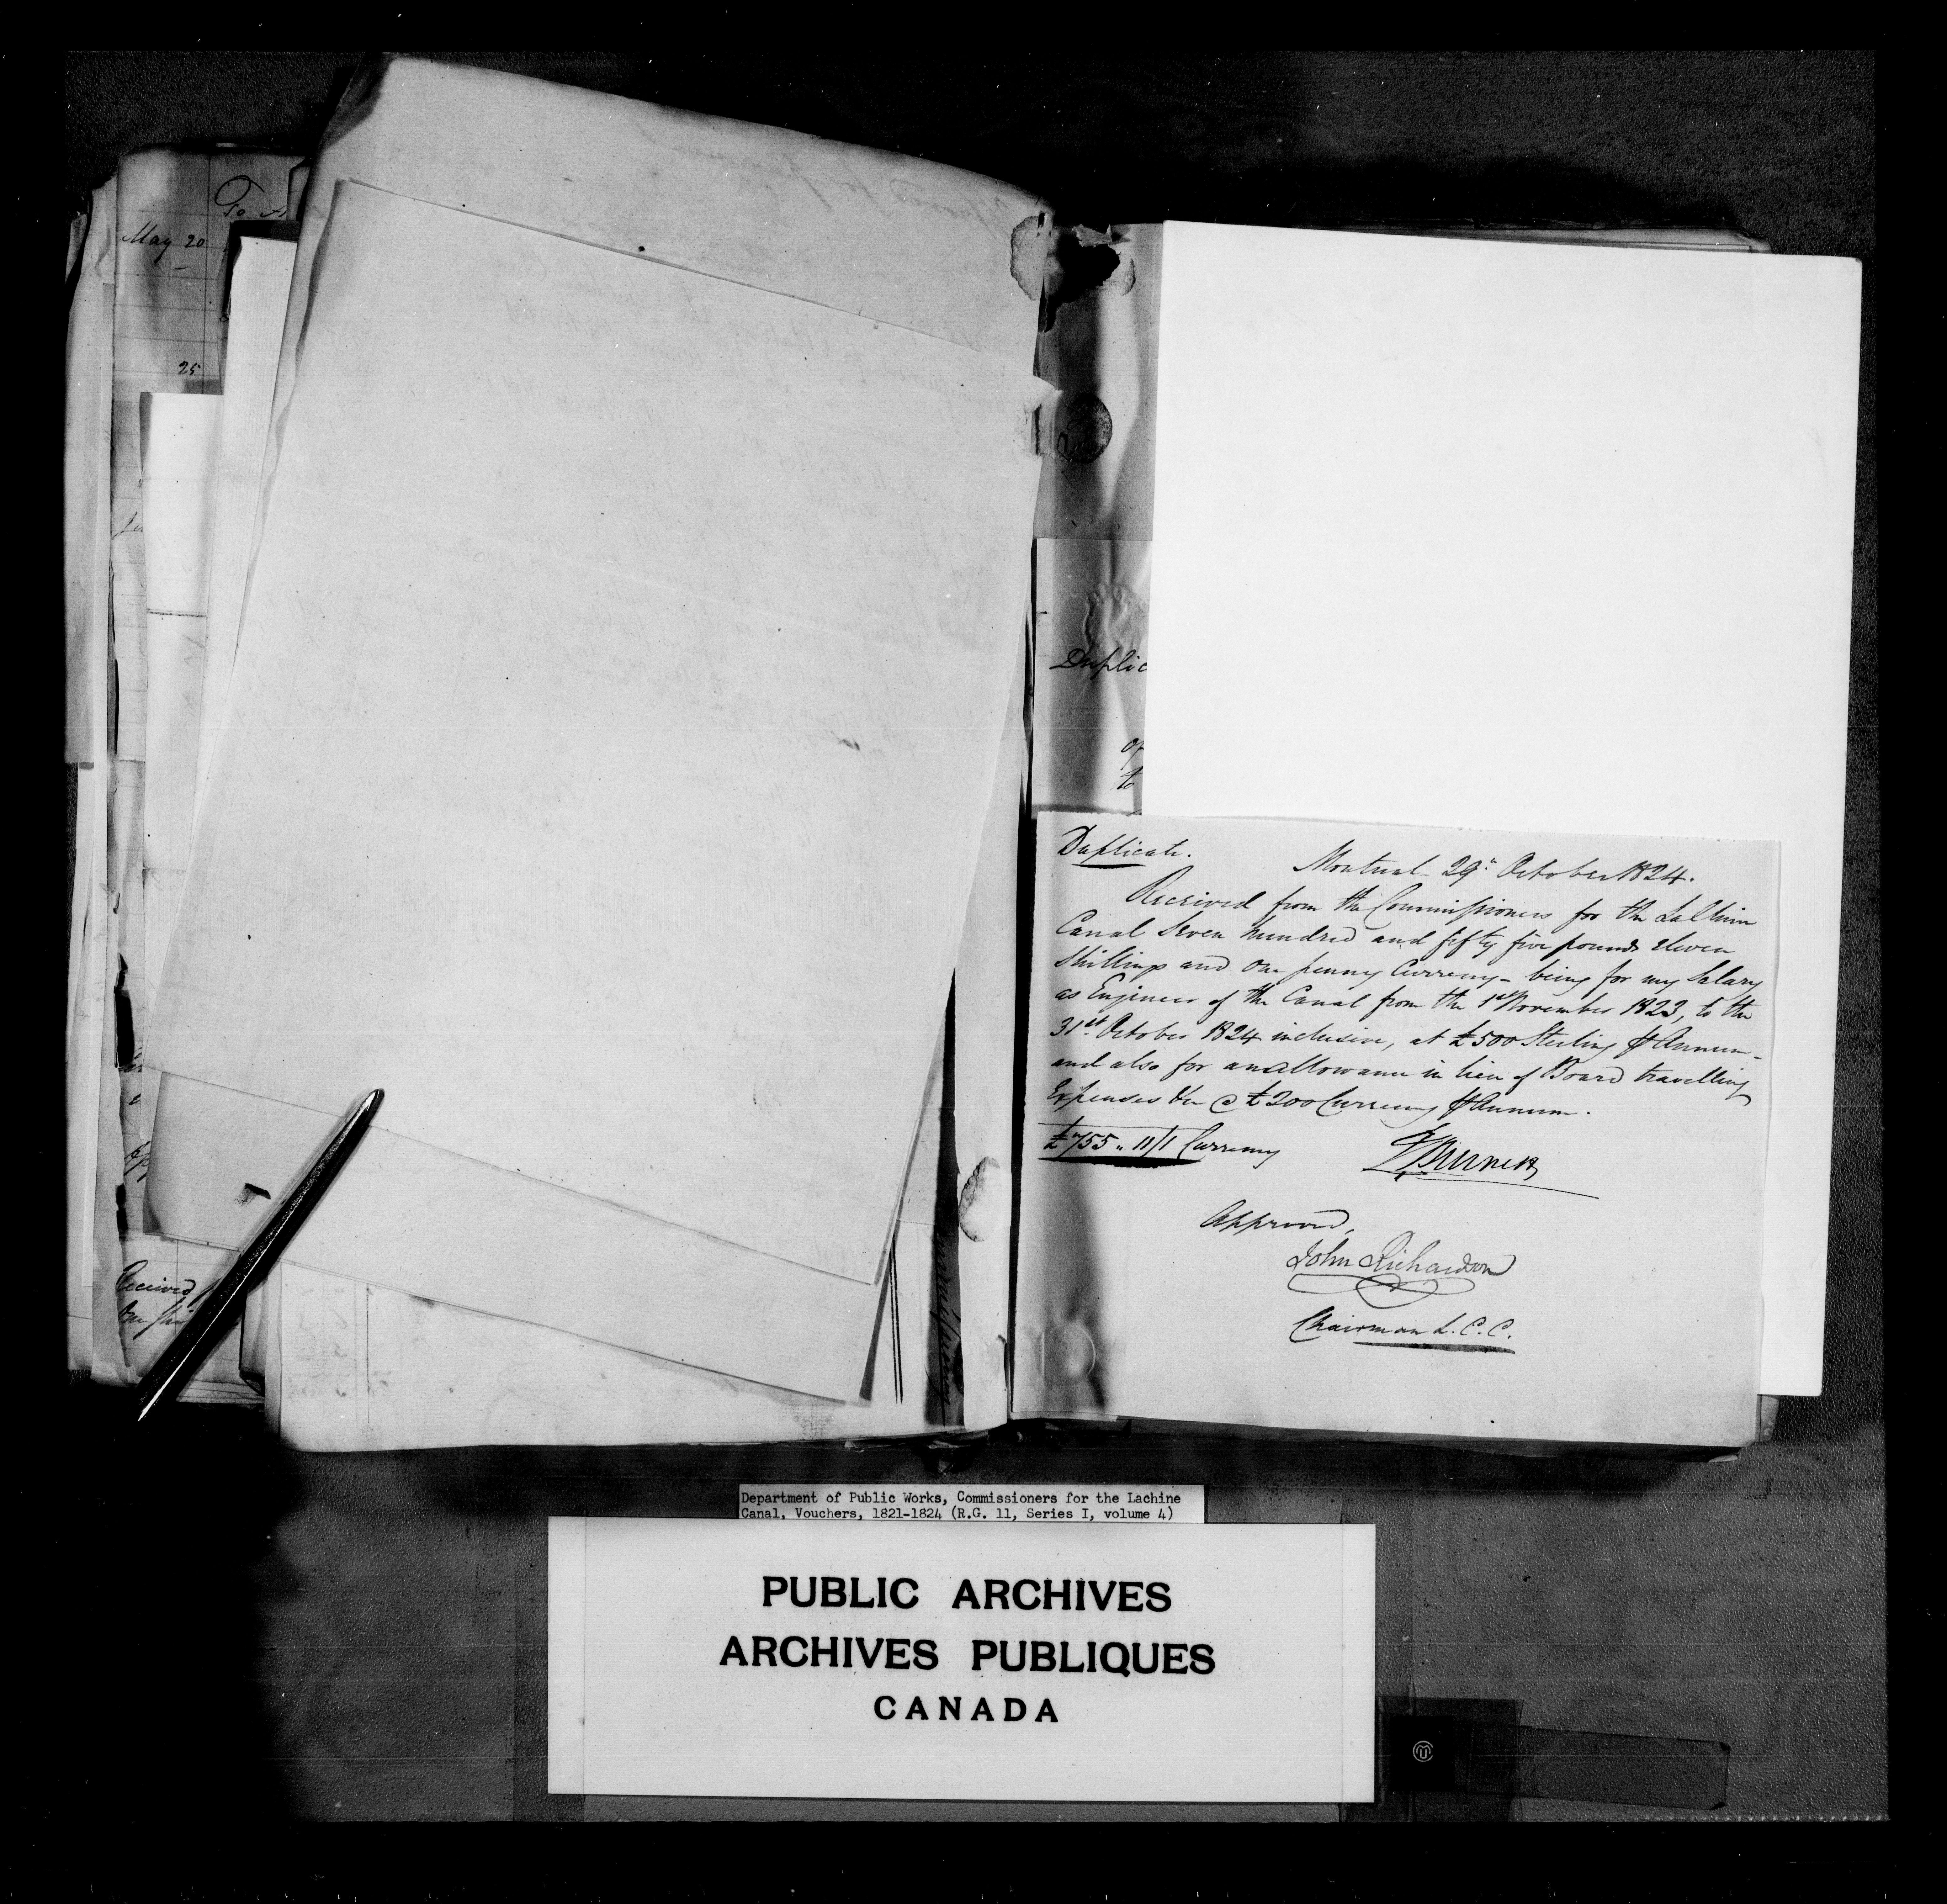 To
May 20
25
Received
One shi
Duplic
of
to
Duplicate.
Montreal 29th October 1824.
Received from the Commissioners for the La Chine
Canal Seven hundred and fifty five pounds eleven
Shillings and One penny Currency - being for my Salary
as Engineer of the Canal from the 1st November 1823, to the
31st October 1824 inclusive, at £500 Sterling ⅌ Annum -
and also for an allowance in lieu of Board travelling
Expenses &c @ £200 Currency ⅌ Annum.
£755 " 11/1 Currency
T Burnett
Approved,
John Richardson
Chairman L.C.C.
Department of Public Works, Commissioners for the Lachine
Canal, Vouchers, 1821-1824 (R.G. 11, Series I, volume 4)
PUBLIC ARCHIVES
ARCHIVES PUBLIQUES
CANADA